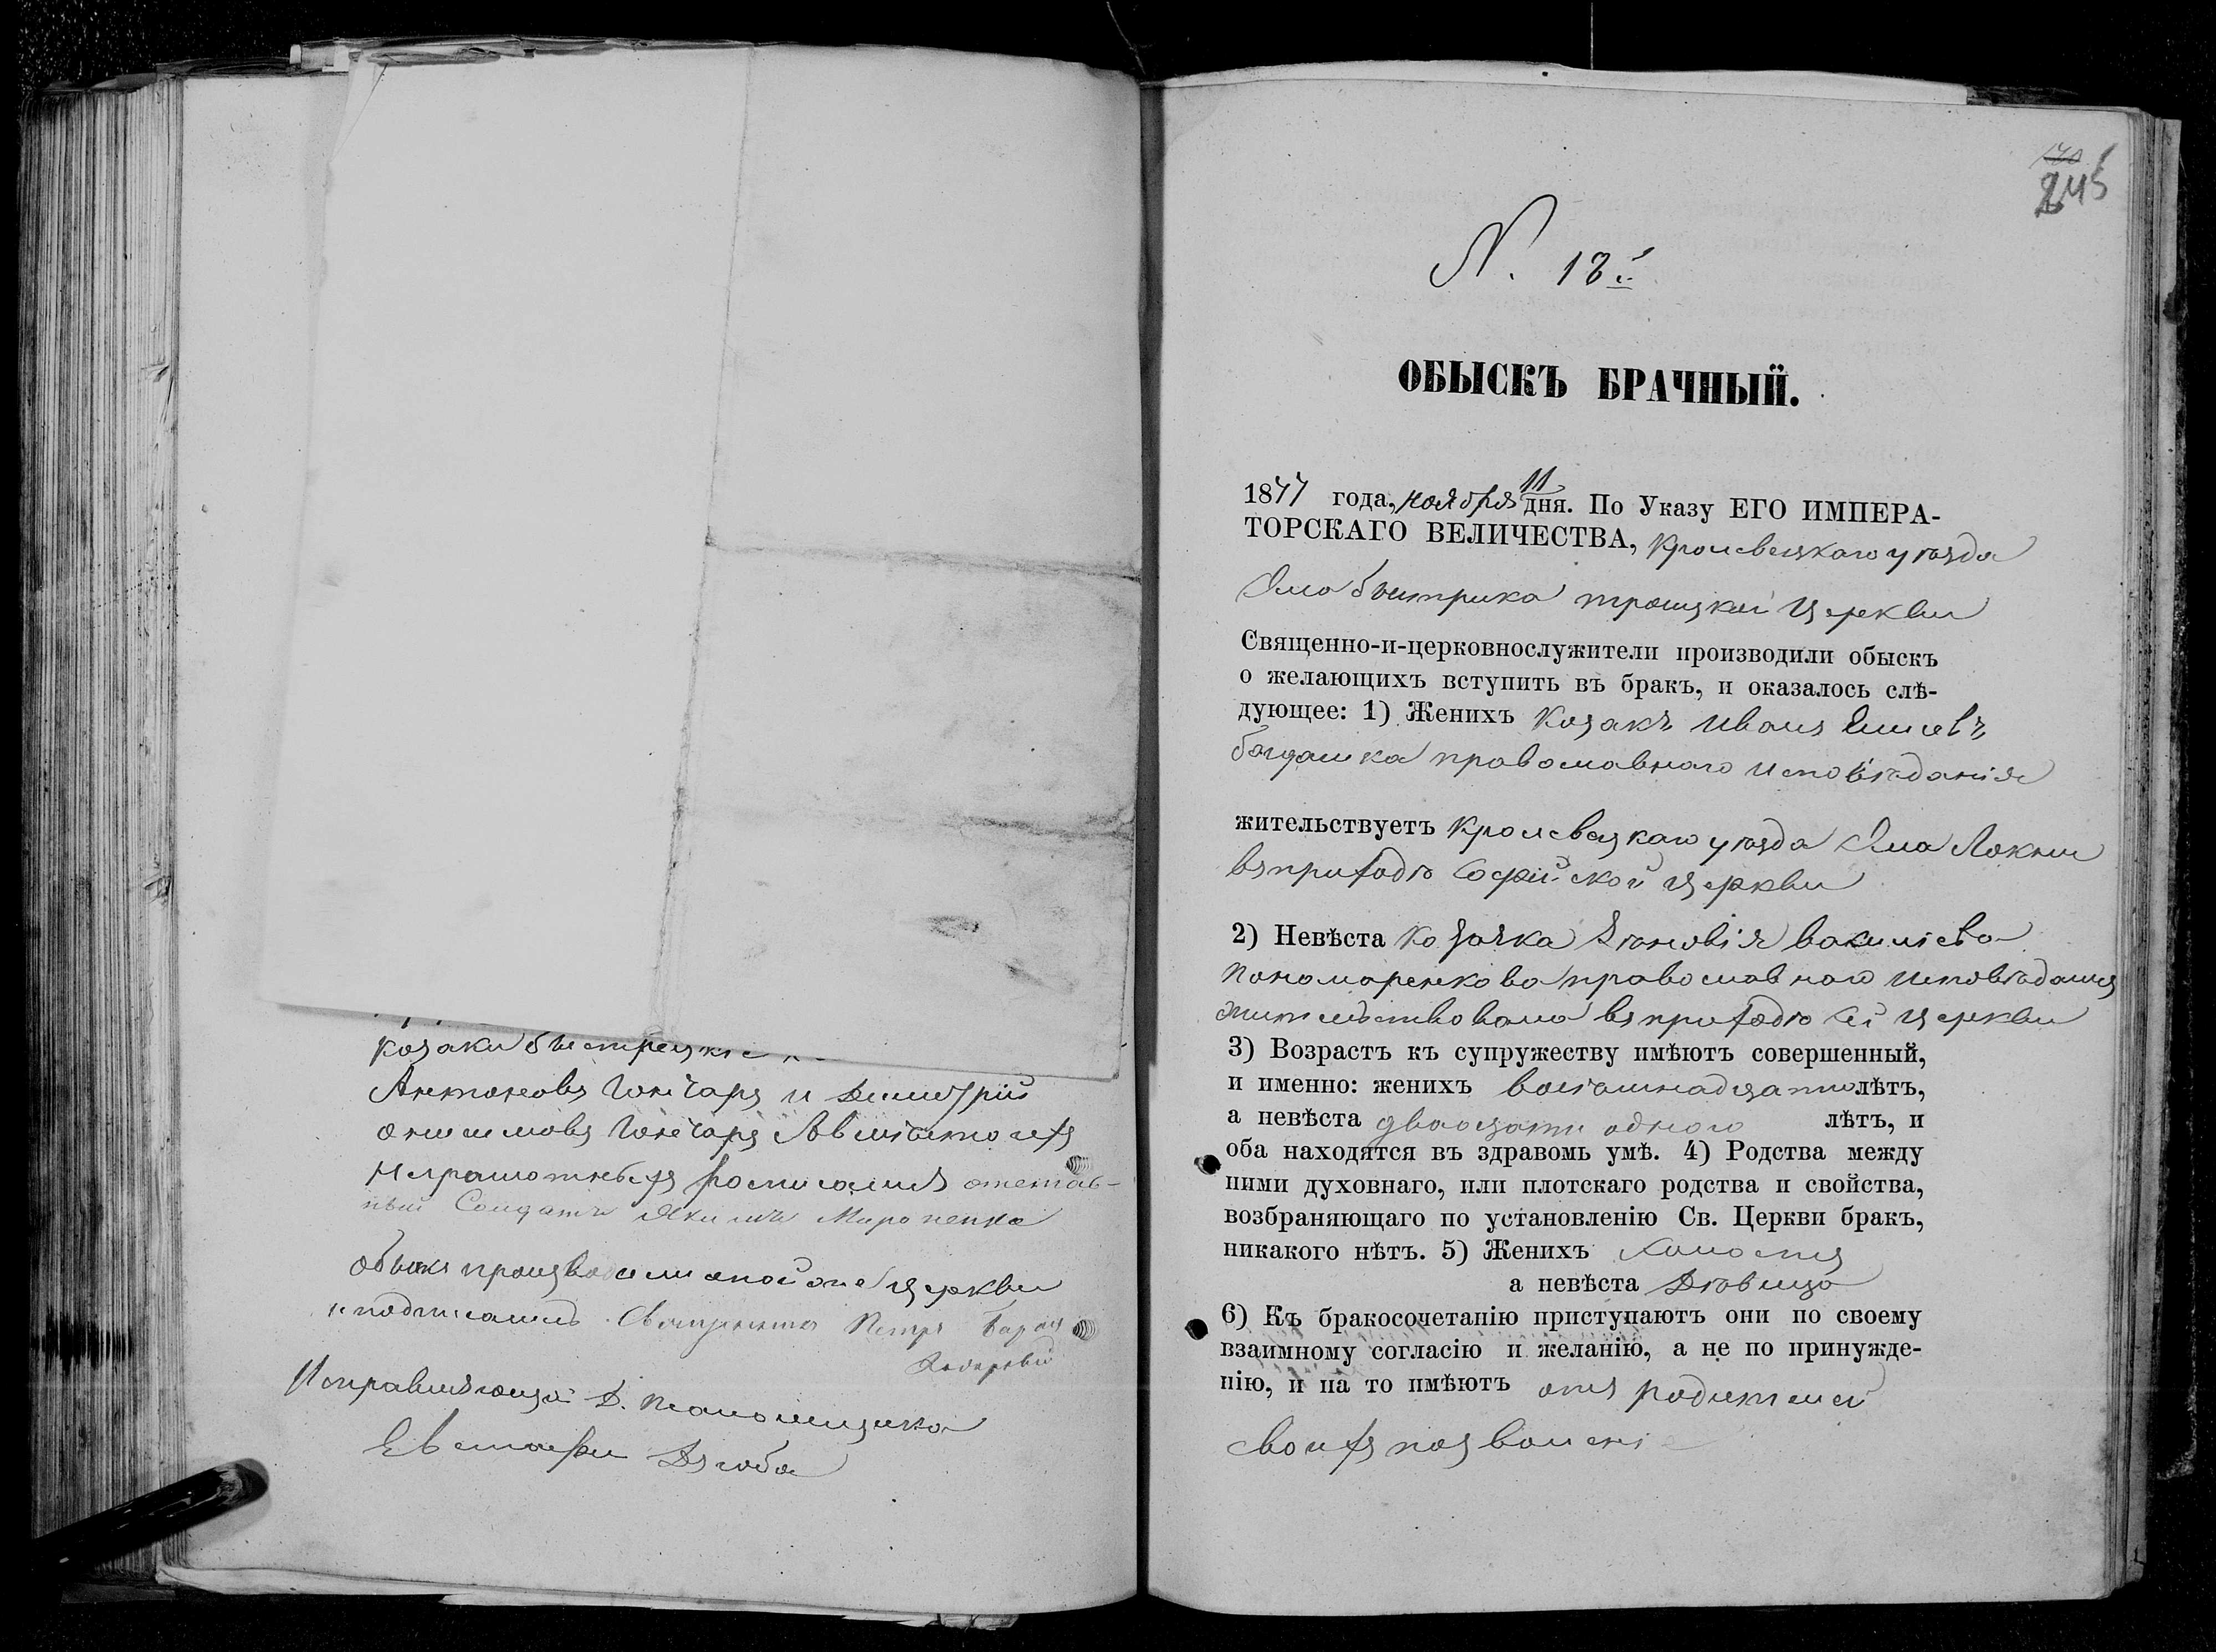 козаки быстрецкіе
Антоновъ Гончаръ и Димитрій
Онисимовъ Гончаръ А вмѣсто ихъ
неграмотныхъ росписался отстав-
ный Солдатъ Якимъ Мироненко
обыскъ производили оной церкви
и подписались Священникъ Петръ
Исправляющій д. псаломщика
Евстафій Дзюба
170
245
N. 18й
ОБЫСКЪ БРАЧНЫЙ.
1877 года, ноября 11 дня. По Указу ЕГО ИМПЕРА-
ТОРСКАГО ВЕЛИЧЕСТВА, Кролевецкаго уѣзда
Села быстрика троицкой Церкви
Священно-и-церковнослужители производили обыскъ
о желающихъ вступить въ бракъ, и оказалось слѣ-
дующее: 1) Женихъ Козакъ Иванъ
православнаго исповѣданія
жительствуетъ Кролевецкаго уѣзда Села Локни
въ приходѣ Софійской Церкви
2) Невѣста Козачка
Пономаренкова православнаго исповѣданія
жительствовала въ приходѣ сей церкви
3) Возрастъ къ супружеству имѣютъ совершенный,
и именно: женихъ восемнадцати лѣтъ,
а невѣста двадцати одного лѣтъ, и
оба находятся въ здравомъ умѣ. 4) Родства между
ними духовнаго, или плотскаго родства и свойства,
возбраняющаго по установленію Св. Церкви бракъ,
никакого нѣтъ. 5) Женихъ холостъ
а невѣста Дѣвица
6) Къ бракосочетанію приступаютъ они по своему
взаимному согласію и желанію, а не по принужде-
нію, и на то имѣютъ отъ родителей
своихъ позволеніе